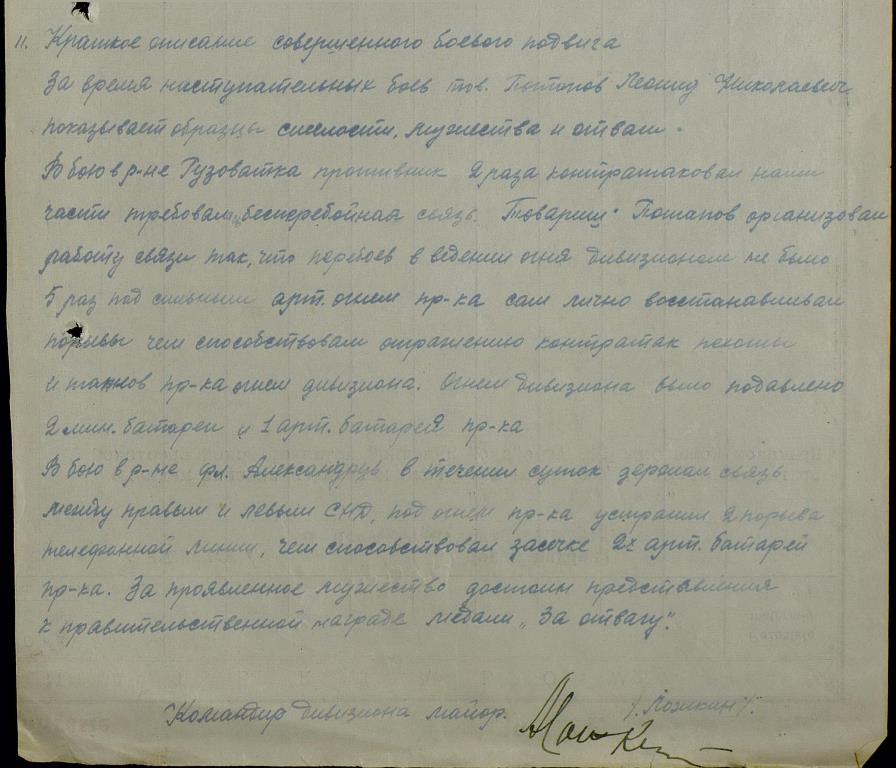 11. Краткое описание совершенного боевого подвига
За время наступательных боев тов. Потапов Леонид Николаевич
показывает образцы смелости, мужества и отваги.
В бою в р-не Рузоватка противник 2 раза контратаковал наши
части требовалась бесперебойная связь. Товарищ Потапов организовал
работу связи так, что перебоев в ведении огня дивизионом не было
5 раз под сильным арт. огнем пр-ка сам лично восстанавливал
порывы чем способствовал отражению контратак пехоты
и танков пр-ка огнем дивизиона. Огнем дивизиона было подавлено
2 мин. батареи и 1 арт. батарея пр-ка
В бою в р-не фл. в течении суток держал связь
между правым и левым СНД, под огнем пр-ка устранил 2 порыва
телефонной линии, чем способствовал засечке 2х арт. батарей
пр-ка. За проявленное мужество достоин представления
к правительственной награде медали „За отвагу".
Командир дивизиона майор. /Ложкин/.